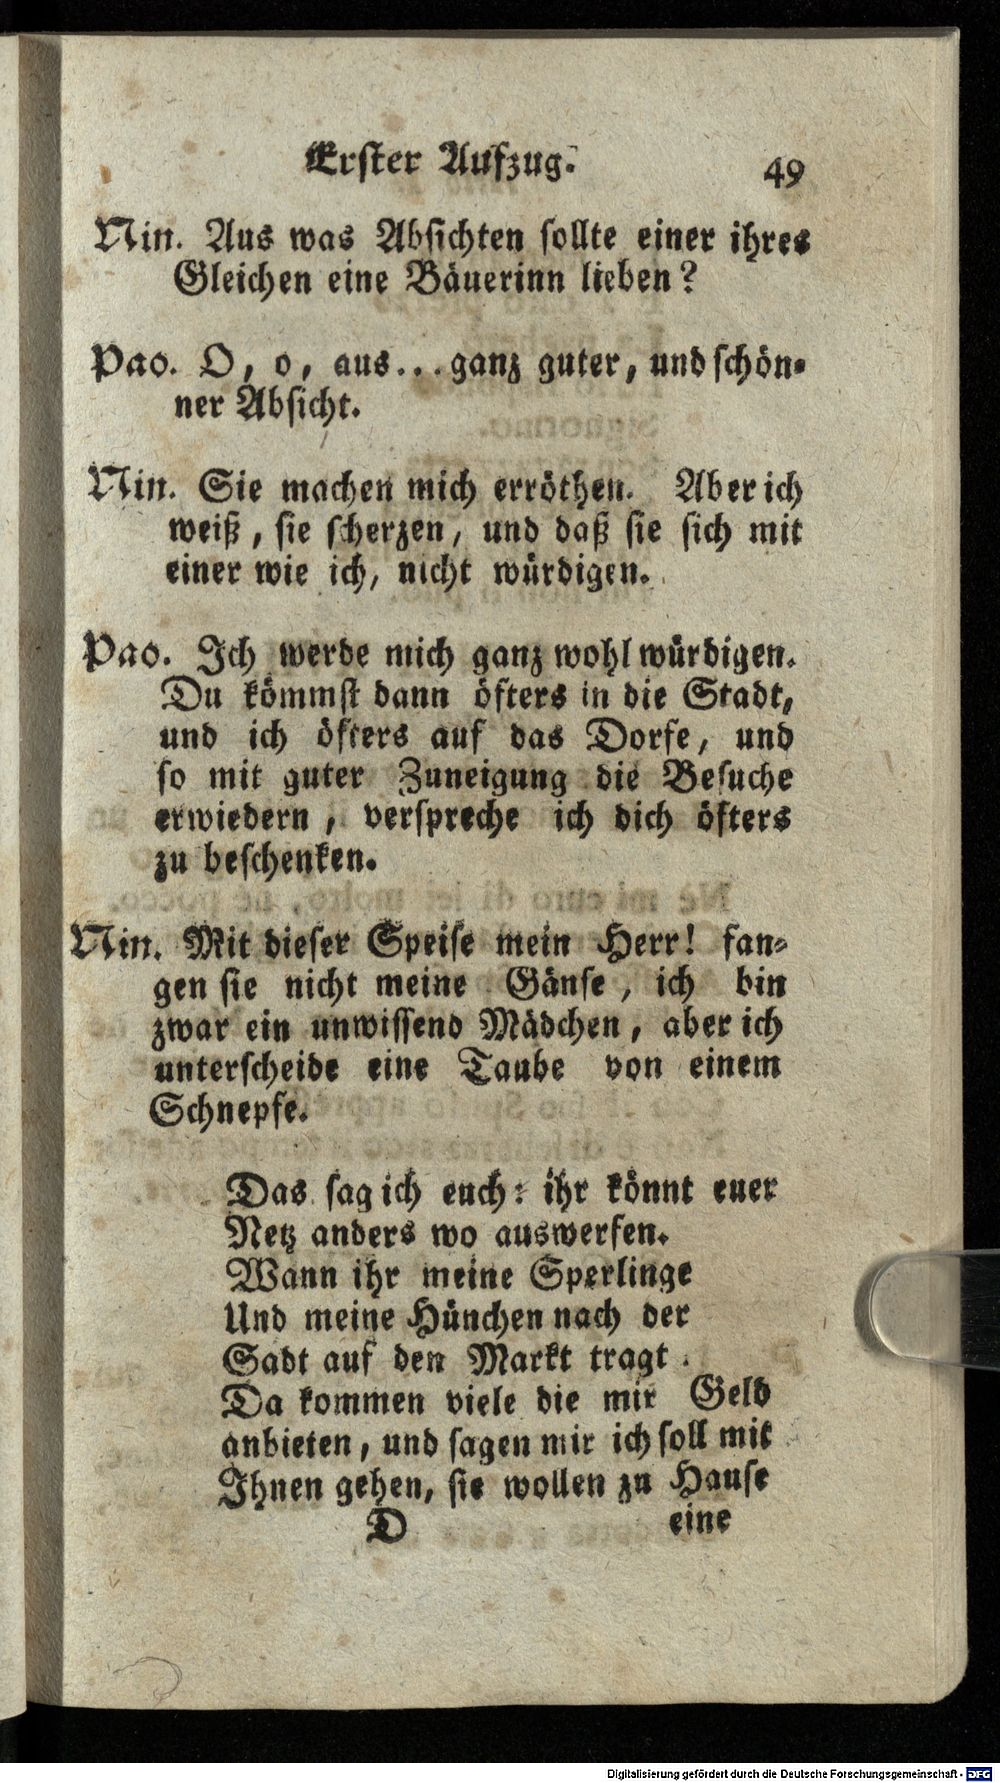 Erster Aufzug. 49
Nin. Aus was Absichten sollte einer ihres
Gleichen eine Bäuerinn lieben?
Pao. O, o, aus... ganz guter, und schön-
ner Absicht.
Nin. Sie machen mich erröthen. Aber ich
weiß, sie scherzen, und daß sie sich mit
einer wie ich, nicht würdigen.
Pao. Ich werde mich ganz wohl würdigen.
Du kömmst dann öfters in die Stadt,
und ich öfters auf das Dorfe, und
so mit guter Zuneigung die Besuche
erwiedern, verspreche ich dich öfters
zu beschenken.
Nin. Mit dieser Speise mein Herr! fan-
gen sie nicht meine Gänse, ich bin
zwar ein unwissend Mädchen, aber ich
unterscheide eine Taube von einem
Schnepfe.
Das sag ich euch: ihr könnt euer
Netz anders wo auswerfen.
Wann ihr meine Sperlinge
Und meine Hünchen nach der
Sadt auf den Markt tragt.
Da kommen viele die mir Geld
anbieten, und sagen mir ich soll mit
Ihnen gehen, sie wollen zu Hause
D eine
Digitalisierung gefördert durch die Deutsche Forschungsgemeinschaft - DFG